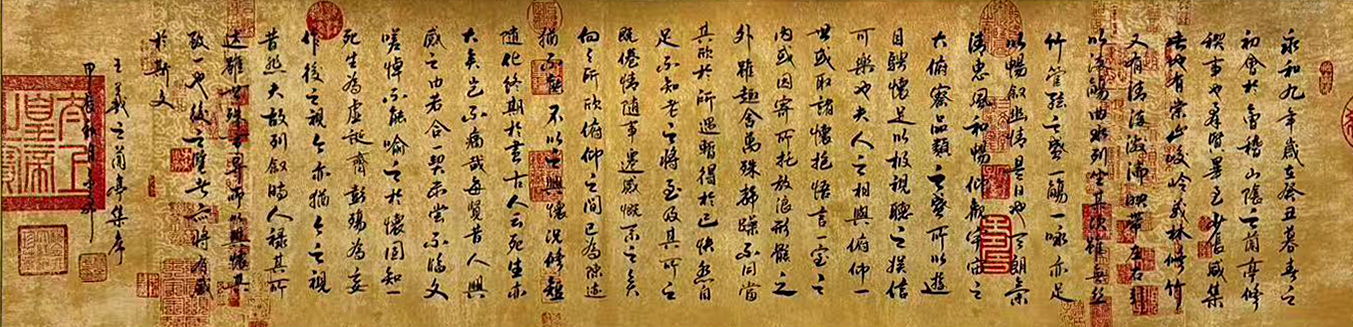 永和九年歲在癸丑暮春之
初會於會稽山陰之蘭亭脩
禊事也羣賢畢至少長咸集
此地有崇山峻嶺茂林脩竹
又有清流激湍映帶左右引
以流觴曲水列坐其次雖無絲
竹管絃之盛一觴一詠亦足
以暢叙幽情是日也天朗氣
清惠風和暢仰觀宇宙之
大俯察品類之盛所以遊
目騁懷足以極視聽之娛信
可樂也夫人之相與俯仰一
世或取諸懷抱悟言一室之
內或因寄所托放浪形骸之
外雖趣舍萬殊靜躁不同當
其欣於所遇暫得於己快然自
足不知老之將至及其所之
既倦情隨事遷感慨係之矣
向之所欣俯仰之間已為陳迹
猶不能不以之興懷況脩短
隨化終期於盡古人云死生亦
大矣豈不痛哉每覽昔人興
感之由若合一契未嘗不臨文
嗟悼不能喻之於懷固知一
死生為虛誕齊彭殤為妄
作後之視今亦猶今之視
昔悲夫故列叙時人錄其所
述雖世殊事異所以興懷其
致一也後之覽者亦將有感
於斯文
王羲之蘭亭集序
甲辰